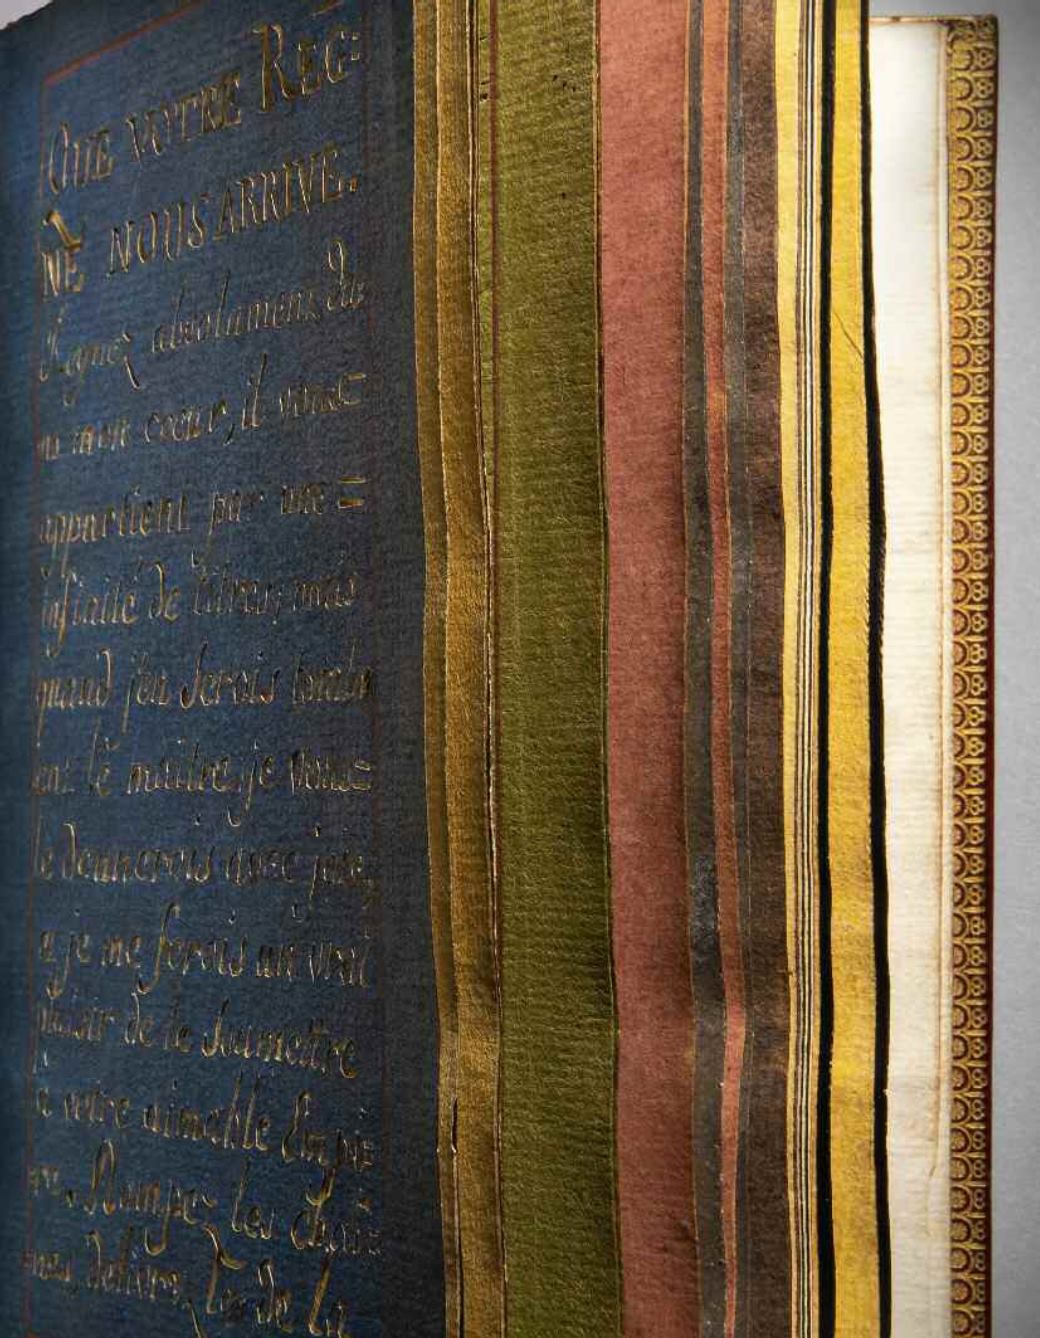 QUE VOTRE REG=
NE NOUS ARRIVE.
Regnez absolument da
mon cœur, il vous
appartient par une =
infinité de titres; mais
quand j'en serois
le maitre, je vous=
le donnerois avec joie,
et je me ferois un vrai
plaisir de le soumettre
a votre aimable Empi=
re. Rompez les chai=
nes, de la